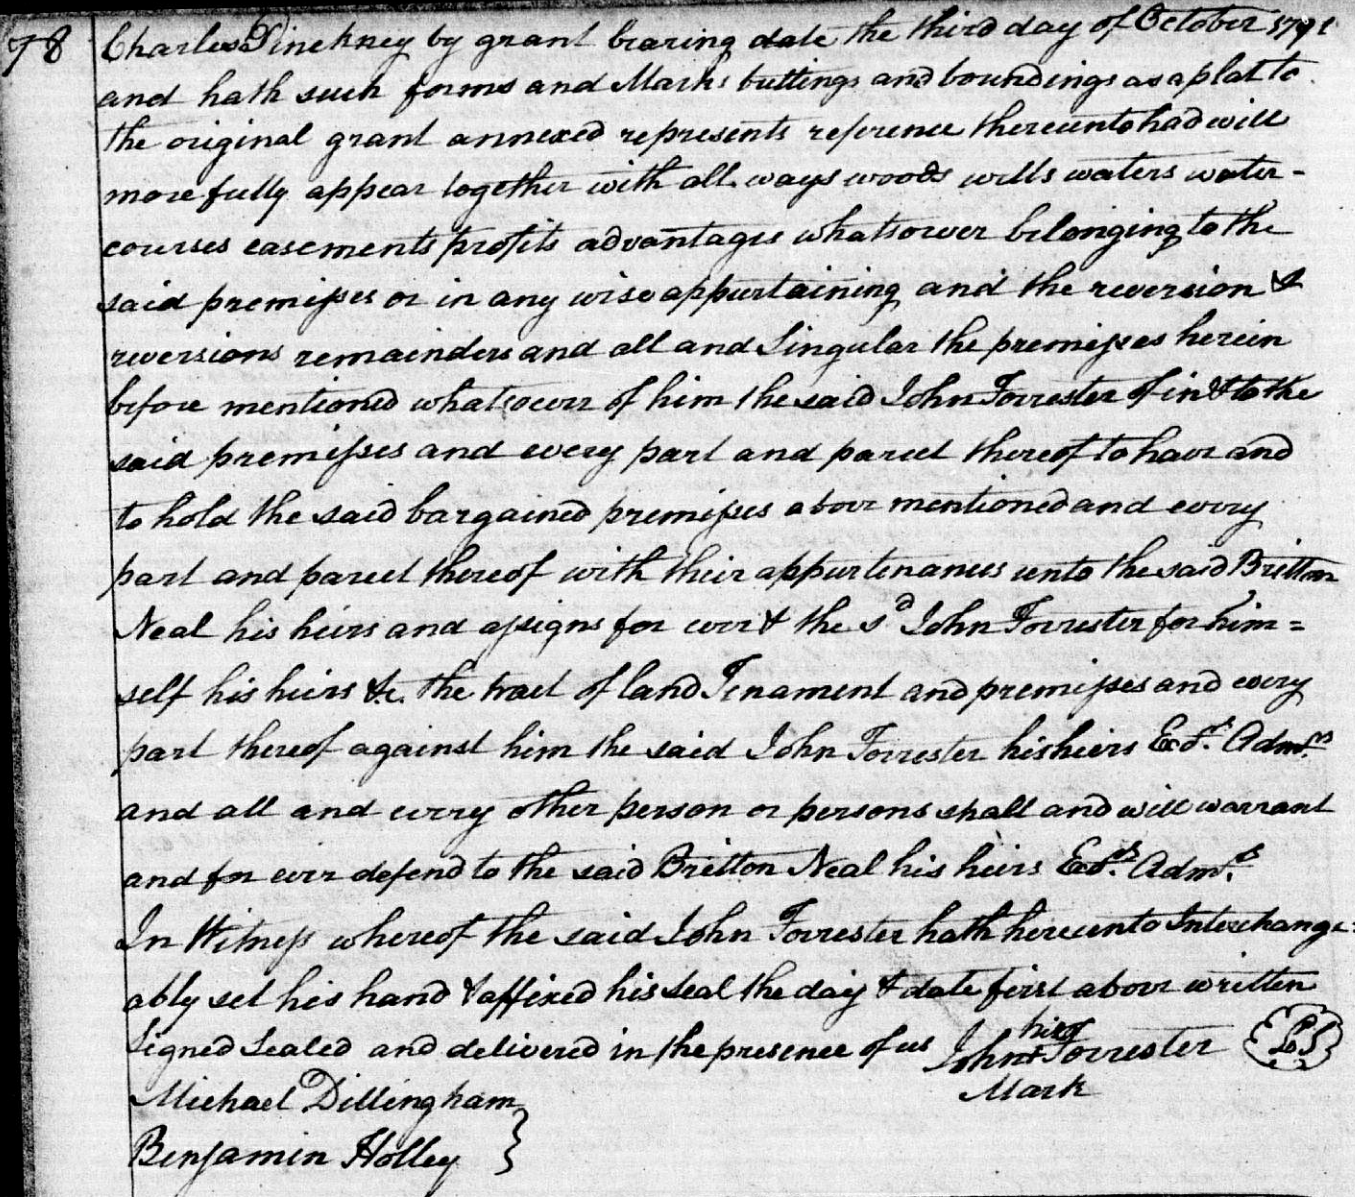 78 Charles Pinckney by grant bearing date the third day of October 1791
and hath such forms and Marks buttings and boundings as a plat to
the original grant annexed represents reference thereunto had will
more fully appear together with all ways woods wells waters water-
courses easements profits advantages whatsoever belonging to the
said premisses or in any wise appurtaining and the reversion &
reversions remainders and all and Singular the premisses herein
before mentioned whatsoever of him the said John Forrester of in & to the
said premisses and every part and parcel thereof to have and
to hold the said bargained premisses above mentioned and every
part and parcel thereof with their appurtenances unto the said Britton
Neal his heirs and assigns for ever & the sd John Forrester for him=
self his heirs &c. the tract of land Tenament and premisses and every
part thereof against him the said John Forrester his heirs Exrs. Admrs
and all and every other person or persons shall and will warrant
and for ever defend to the said Britton Neal his heirs Exrs. Adms.
In Witness whereof the said John Forrester hath hereunto Interchange=
ably set his hand & affixed his seal the day & date first above written
Signed Sealed and delivered in the presence of us John his + Forrester LS
Mark
Michael Dillingham
Benjamin Holley }